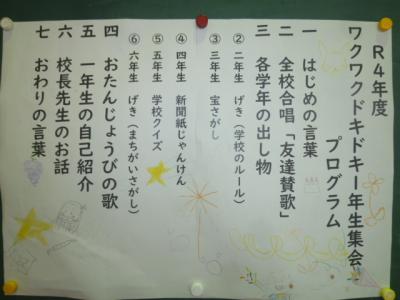 R４年度
ワクワクドキドキ１年生集会
プログラム
一 はじめの言葉
二 全校合唱「友達賛歌」
三 各学年の出し物
② 二年生 げき（学校のルール）
③ 三年生 宝さがし
④ 四年生 新聞紙じゃんけん
⑤ 五年生 学校クイズ
⑥ 六年生 げき（まちがいさがし）
四 おたんじょうびの歌
五 一年生の自己紹介
六 校長先生のお話
七 おわりの言葉